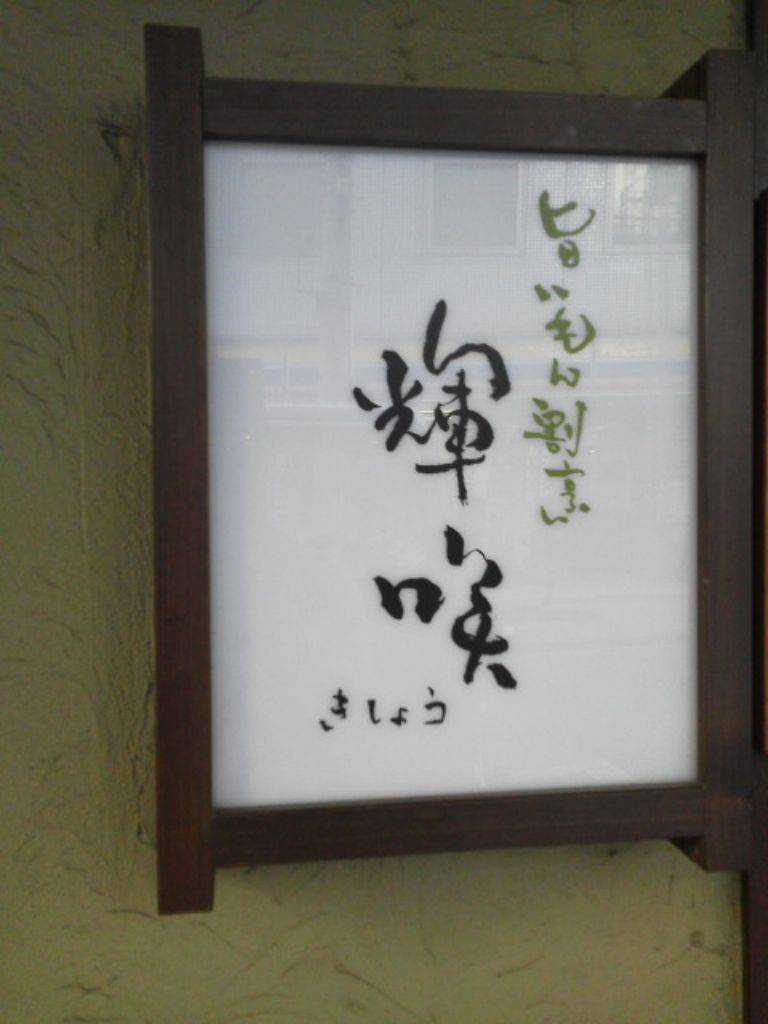 旨いもん割烹
輝咲
きしょう